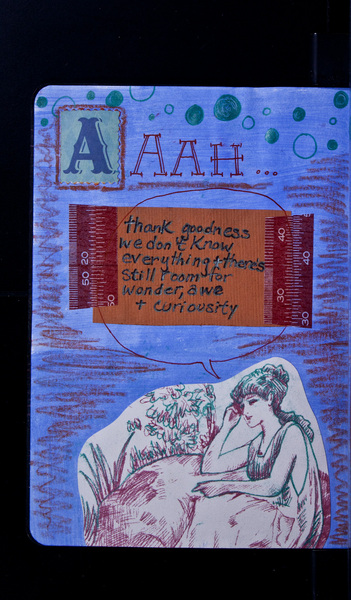 A AAH...
thank goodness
we don't know
everything + there's
still room for
wonder, awe
+ curiousity
50 20
50
40 40
30 30